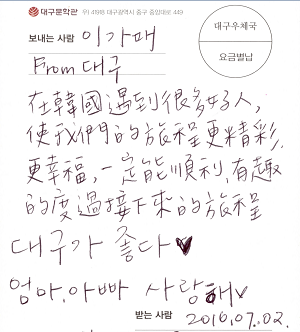 대구문학관 우) 41918 대구광역시 중구 중앙대로 449
보내는 사람 이가패
From 대구
대구우체국
요금별납
在韓國遇到很多好人,
使我們的旅程更精彩,
更幸福,一定能順利,有趣
的度過接下來的旅程
대구가 좋다♥
엄마, 아빠 사랑해♥
받는 사람 2016.07.02.